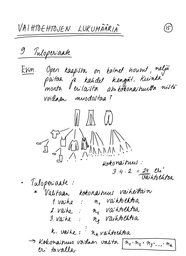 VAIHTOEHTOJEN LUKUMÄÄRIÄ
15
9 Tuloperiaate
Esim. Open kaapissa on kolmet housut, neljä
paitaa ja kahdet kengät. Kuinka
monta erilaista asukokonaisuutta niistä
voidaan muodostaa?
kokonaisuus:
3·4·2 = 24 eri
vaihtoehtoa
• Tuloperiaate:
* Valitaan kokonaisuus vaiheittain
1. vaihe : n₁ vaihtoehtoa
2. vaihe : n₂ vaihtoehtoa
3. vaihe : n₃ vaihtoehtoa
k. vaihe : nₖ vaihtoehtoa
→ kokonaisuus voidaan valita n₁·n₂·n₃·...·nₖ
eri tavalla